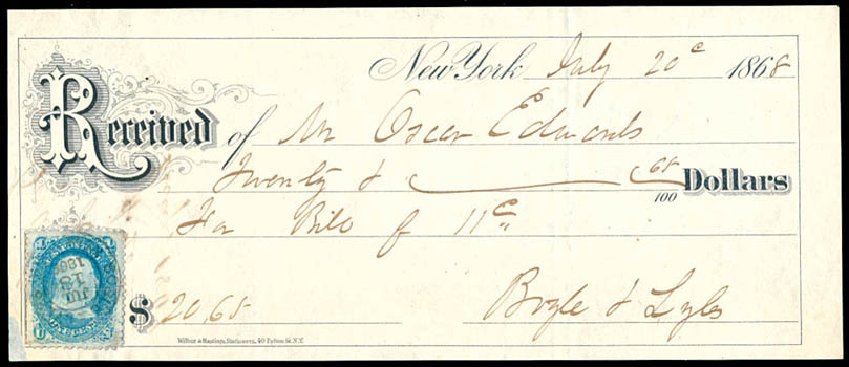 New York July 20e 1868
Received of Mr Oscar Edwards
Twenty & 65/100 Dollars
For Bill of 11e
$ 20.65 Boyle & Lyles
Wilbur & Hastings, Stationers, 40 Fulton St. N.Y.
JUL
18
186